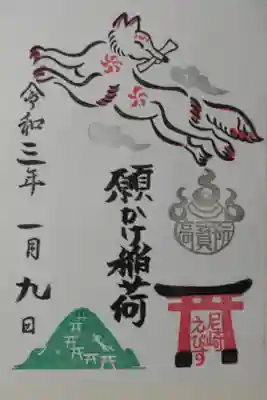 願かけ稲荷
尼崎
えびす
令和三年 一月九日